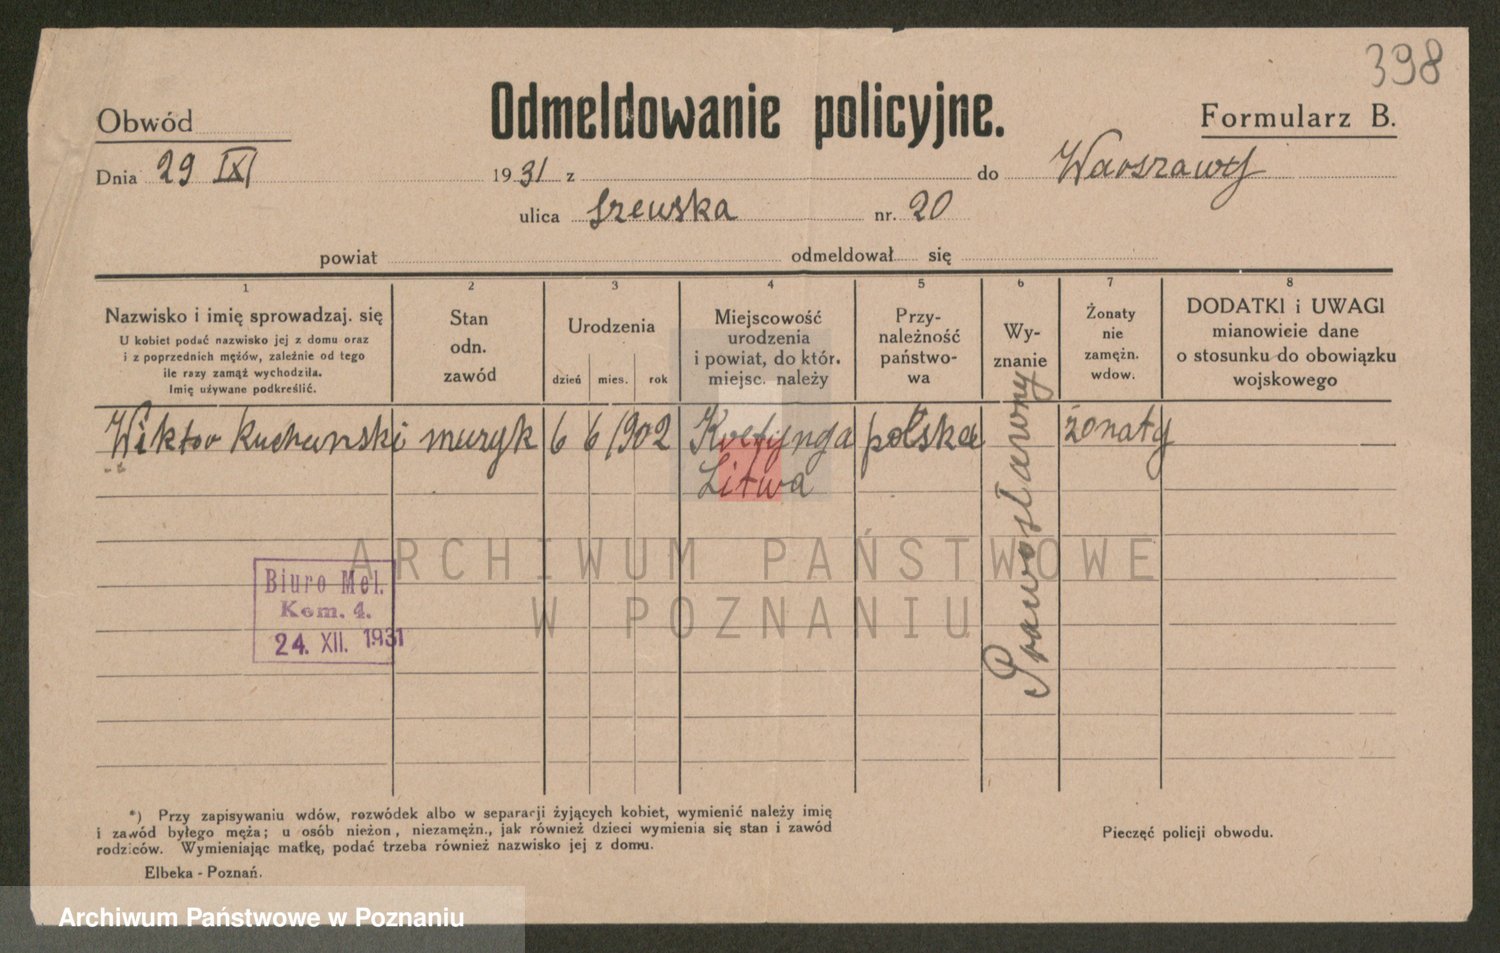 398
Odmeldowanie policyjne.
Obwód
Formularz B.
Dnia 29 IXI 1931 z do Warszawy
ulica Szewska nr. 20
powiat odmeldował się
1 2 3 4 5 6 7 8
Nazwisko i imię sprowadzaj. się
U kobiet podać nazwisko jej z domu oraz
i z poprzednich mężów, zależnie od tego
ile razy zamąż wychodziła.
Imię używane podkreślić.
Stan
odn.
zawód
Urodzenia
dzień mies. rok
Miejscowość
urodzenia
i powiat, do któr.
miejsc. należy
Przy-
należność
państwo-
wa
Wy-
znanie
Żonaty
nie
zamężn.
wdow.
DODATKI i UWAGI
mianowicie dane
o stosunku do obowiązku
wojskowego
Wiktor Kucharski muzyk 6 6 1902 Kretynga polska Prawosławny żonaty
Litwa
ARCHIWUM PAŃSTWOWE
W POZNANIU
Biuro Mel.
Kom. 4.
24. XII. 1931
*) Przy zapisywaniu wdów, rozwódek albo w separacji żyjących kobiet, wymienić należy imię
i zawód byłego męża; u osób nieżon, niezamężn., jak również dzieci wymienia się stan i zawód
rodziców. Wymieniając matkę, podać trzeba również nazwisko jej z domu.
Pieczęć policji obwodu.
Elbeka - Poznań.
Archiwum Państwowe w Poznaniu